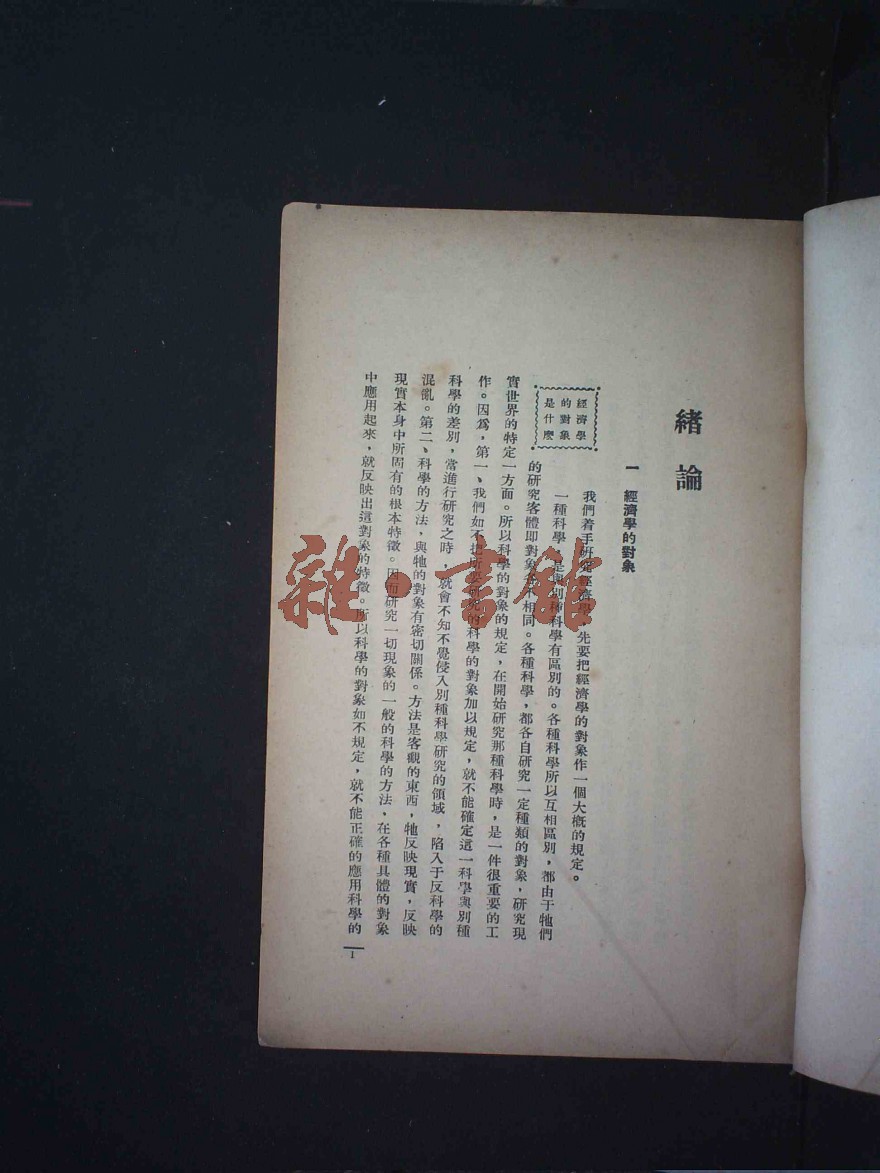 緒論
一 經濟學的對象
我們着手研究經濟學，先要把經濟學的對象作一個大槪的規定。
經濟學
的對象
是什麽
一種科學，是與別種科學有區別的。各種科學所以互相區別，都由于牠們
的研究客體卽對象各不相同。各種科學，都各自研究一定種類的對象，研究現
實世界的特定一方面。所以科學的對象的規定，在開始研究那種科學時，是一件很重要的工
作。因爲，第一、我們如不把所要硏究的科學的對象加以規定，就不能確定這一科學與別種
科學的差別，當進行研究之時，就會不知不覺侵入別種科學研究的領域，陷入于反科學的
混亂。第二、科學的方法，與牠的對象有密切關係。方法是客觀的東西，牠反映現實，反映
現實本身中所固有的根本特徵。因而研究一切現象的一般的科學的方法，在各種具體的對象
中應用起來，就反映出這對象的特徵。所以科學的對象如不規定，就不能正確的應用科學的
1
雜·書館